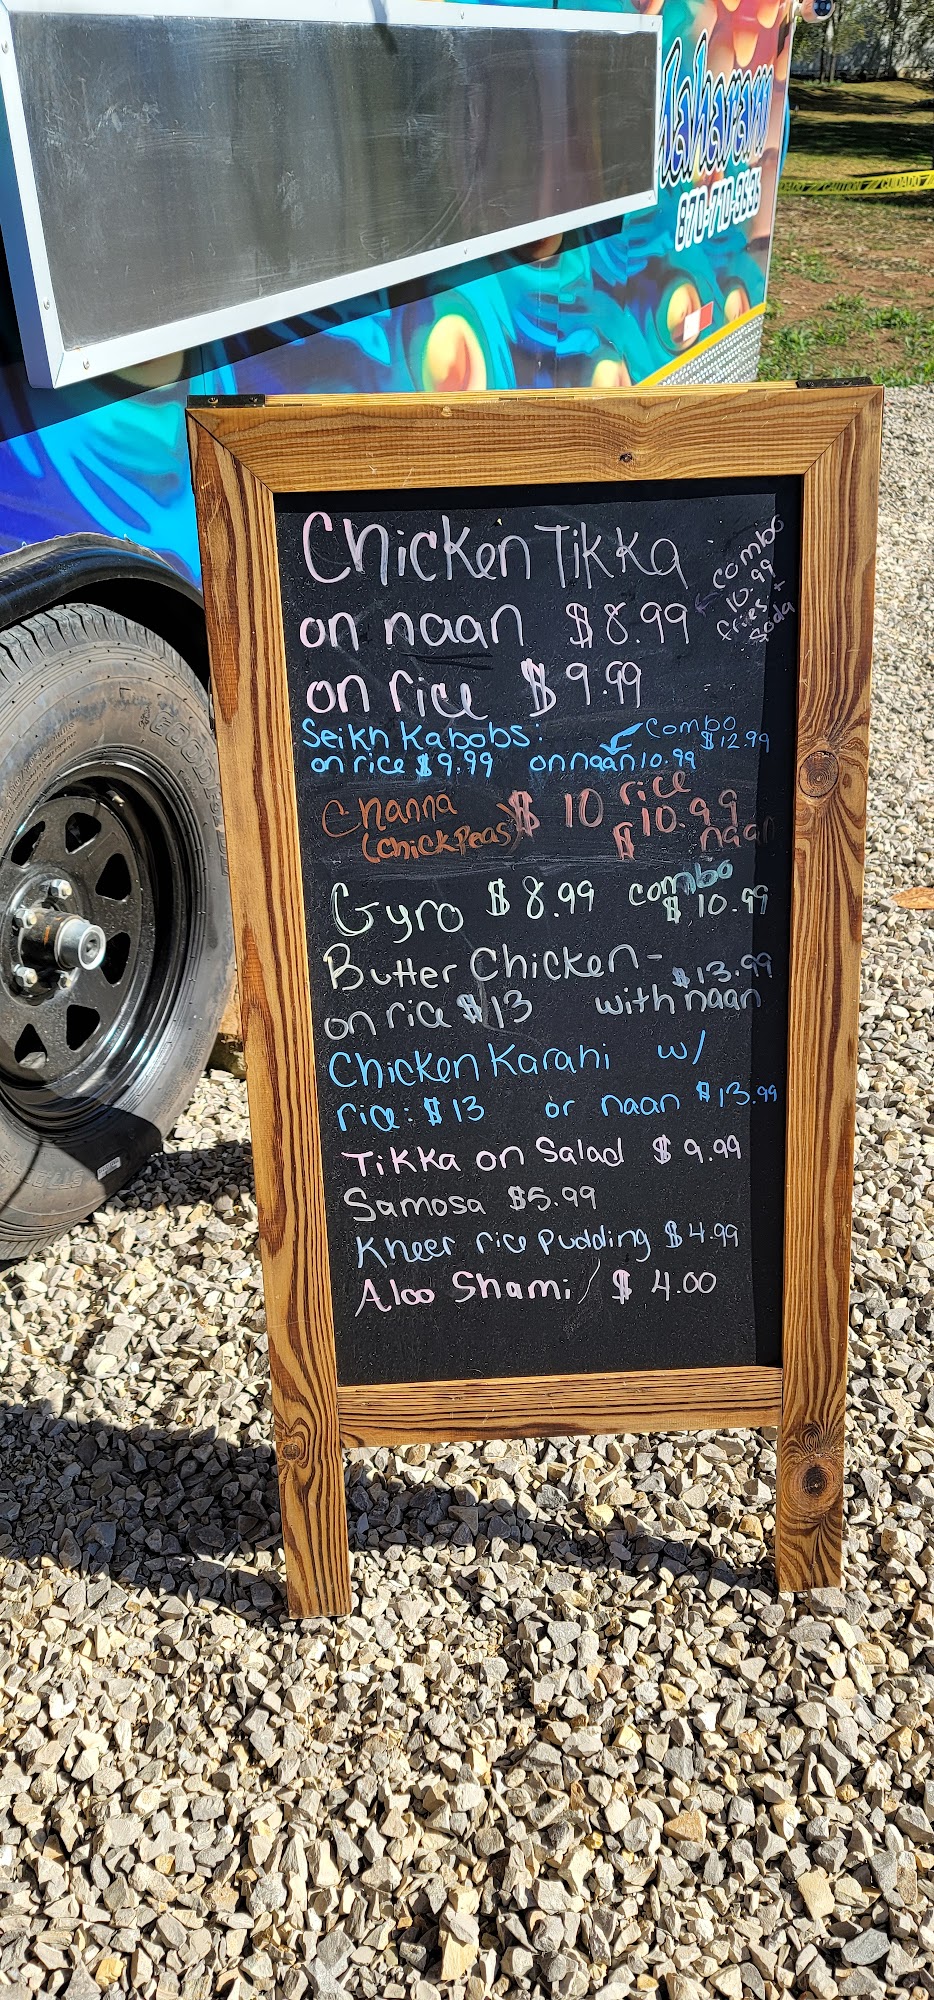 Maharani
870-710-3636
CAUTION CUIDADO
Chicken Tikka
on naan $8.99
combo
10.99
fries +
soda
on rice $9.99
Seikh Kabobs: Combo $12.99
on rice $9.99 on naan 10.99
Channa $10 rice
(chickpeas) $10.99 naan
Gyro $8.99 combo $10.99
Butter Chicken - $13.99
on rice $13 with naan
Chicken Karahi w/
rice: $13 or naan $13.99
Tikka on Salad $9.99
Samosa $5.99
Kheer rice pudding $4.99
Aloo Shami / $4.00